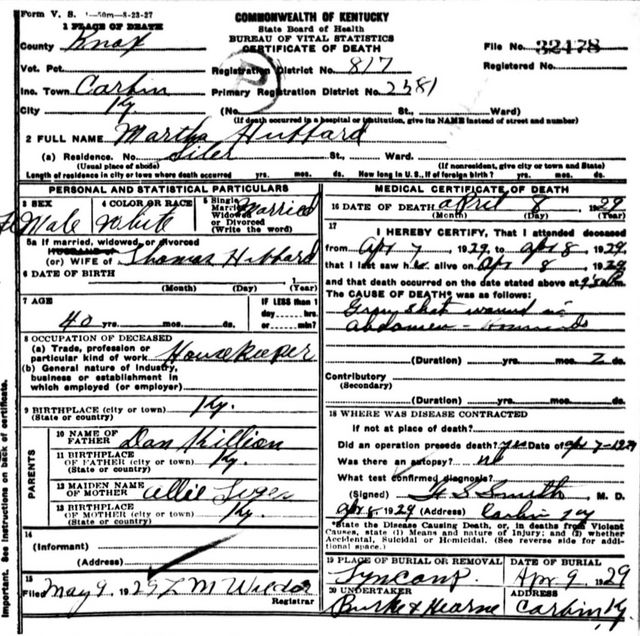 Form V. S. 1-50m-8-23-27
COMMONWEALTH OF KENTUCKY
State Board of Health
BUREAU OF VITAL STATISTICS
CERTIFICATE OF DEATH
1 PLACE OF DEATH
County Knox
File No. 32178
Vot. Pct.
Registration District No. 817
Registered No.
Inc. Town Corbin
Primary Registration District No. 2381
City Ky
(No. St., Ward)
(If death occurred in a hospital or institution, give its NAME instead of street and number)
2 FULL NAME Martha Hubbard
(a) Residence. No. Siler St., Ward.
(Usual place of abode) (If nonresident, give city or town and State)
Length of residence in city or town where death occurred yrs. mos. ds. How long in U. S., if of foreign birth? yrs. mos. ds.
PERSONAL AND STATISTICAL PARTICULARS
3 SEX
FeMale
4 COLOR OR RACE
White
5 Single
Married
Widowed
or Divorced
(Write the word)
Married
5a If married, widowed, or divorced
HUSBAND of
(or) WIFE of Thomas Hibbard
6 DATE OF BIRTH
(Month) (Day) (Year)
7 AGE
40 yrs. mos. ds.
IF LESS than 1
day hrs.
or min.
8 OCCUPATION OF DECEASED
(a) Trade, profession or
particular kind of work Housekeeper
(b) General nature of industry,
business or establishment in
which employed (or employer)
9 BIRTHPLACE (city or town) Ky.
(State or country)
PARENTS
10 NAME OF
FATHER Dan Killion
11 BIRTHPLACE
OF FATHER (city or town) Ky.
(State or country)
12 MAIDEN NAME
OF MOTHER Allie
13 BIRTHPLACE
OF MOTHER (city or town) Ky
(State or country)
14
(Informant)
(Address)
15
Filed May 9, 1929 M
Registrar
MEDICAL CERTIFICATE OF DEATH
16 DATE OF DEATH April 8, 1929
(Month) (Day) (Year)
17
I HEREBY CERTIFY, That I attended deceased
from Apr 7, 1929, to Apr 8, 1929
that I last saw h alive on Apr 8, 1929
and that death occurred on the date stated above at m.
The CAUSE OF DEATH was as follows:
Gun shot wound in
Abdomen -
(Duration) yrs. mos. 2 ds.
Contributory
(Secondary)
(Duration) yrs. mos. ds.
18 WHERE WAS DISEASE CONTRACTED
If not at place of death?
Did an operation precede death? yes Date of Apr 7-1929
Was there an autopsy? no
What test confirmed diagnosis?
(Signed) Smith M. D.
Apr 8, 1929 (Address) Corbin Ky
*State the Disease Causing Death, or, in deaths from Violent
Causes, state (1) Means and nature of Injury; and (2) whether
Accidental, Suicidal or Homicidal. (See reverse side for addi-
tional space.)
19 PLACE OF BURIAL OR REMOVAL
DATE OF BURIAL
Apr. 9, 1929
20 UNDERTAKER
Burke & Hearne
ADDRESS
Corbin Ky
Important. See instructions on back of certificate.